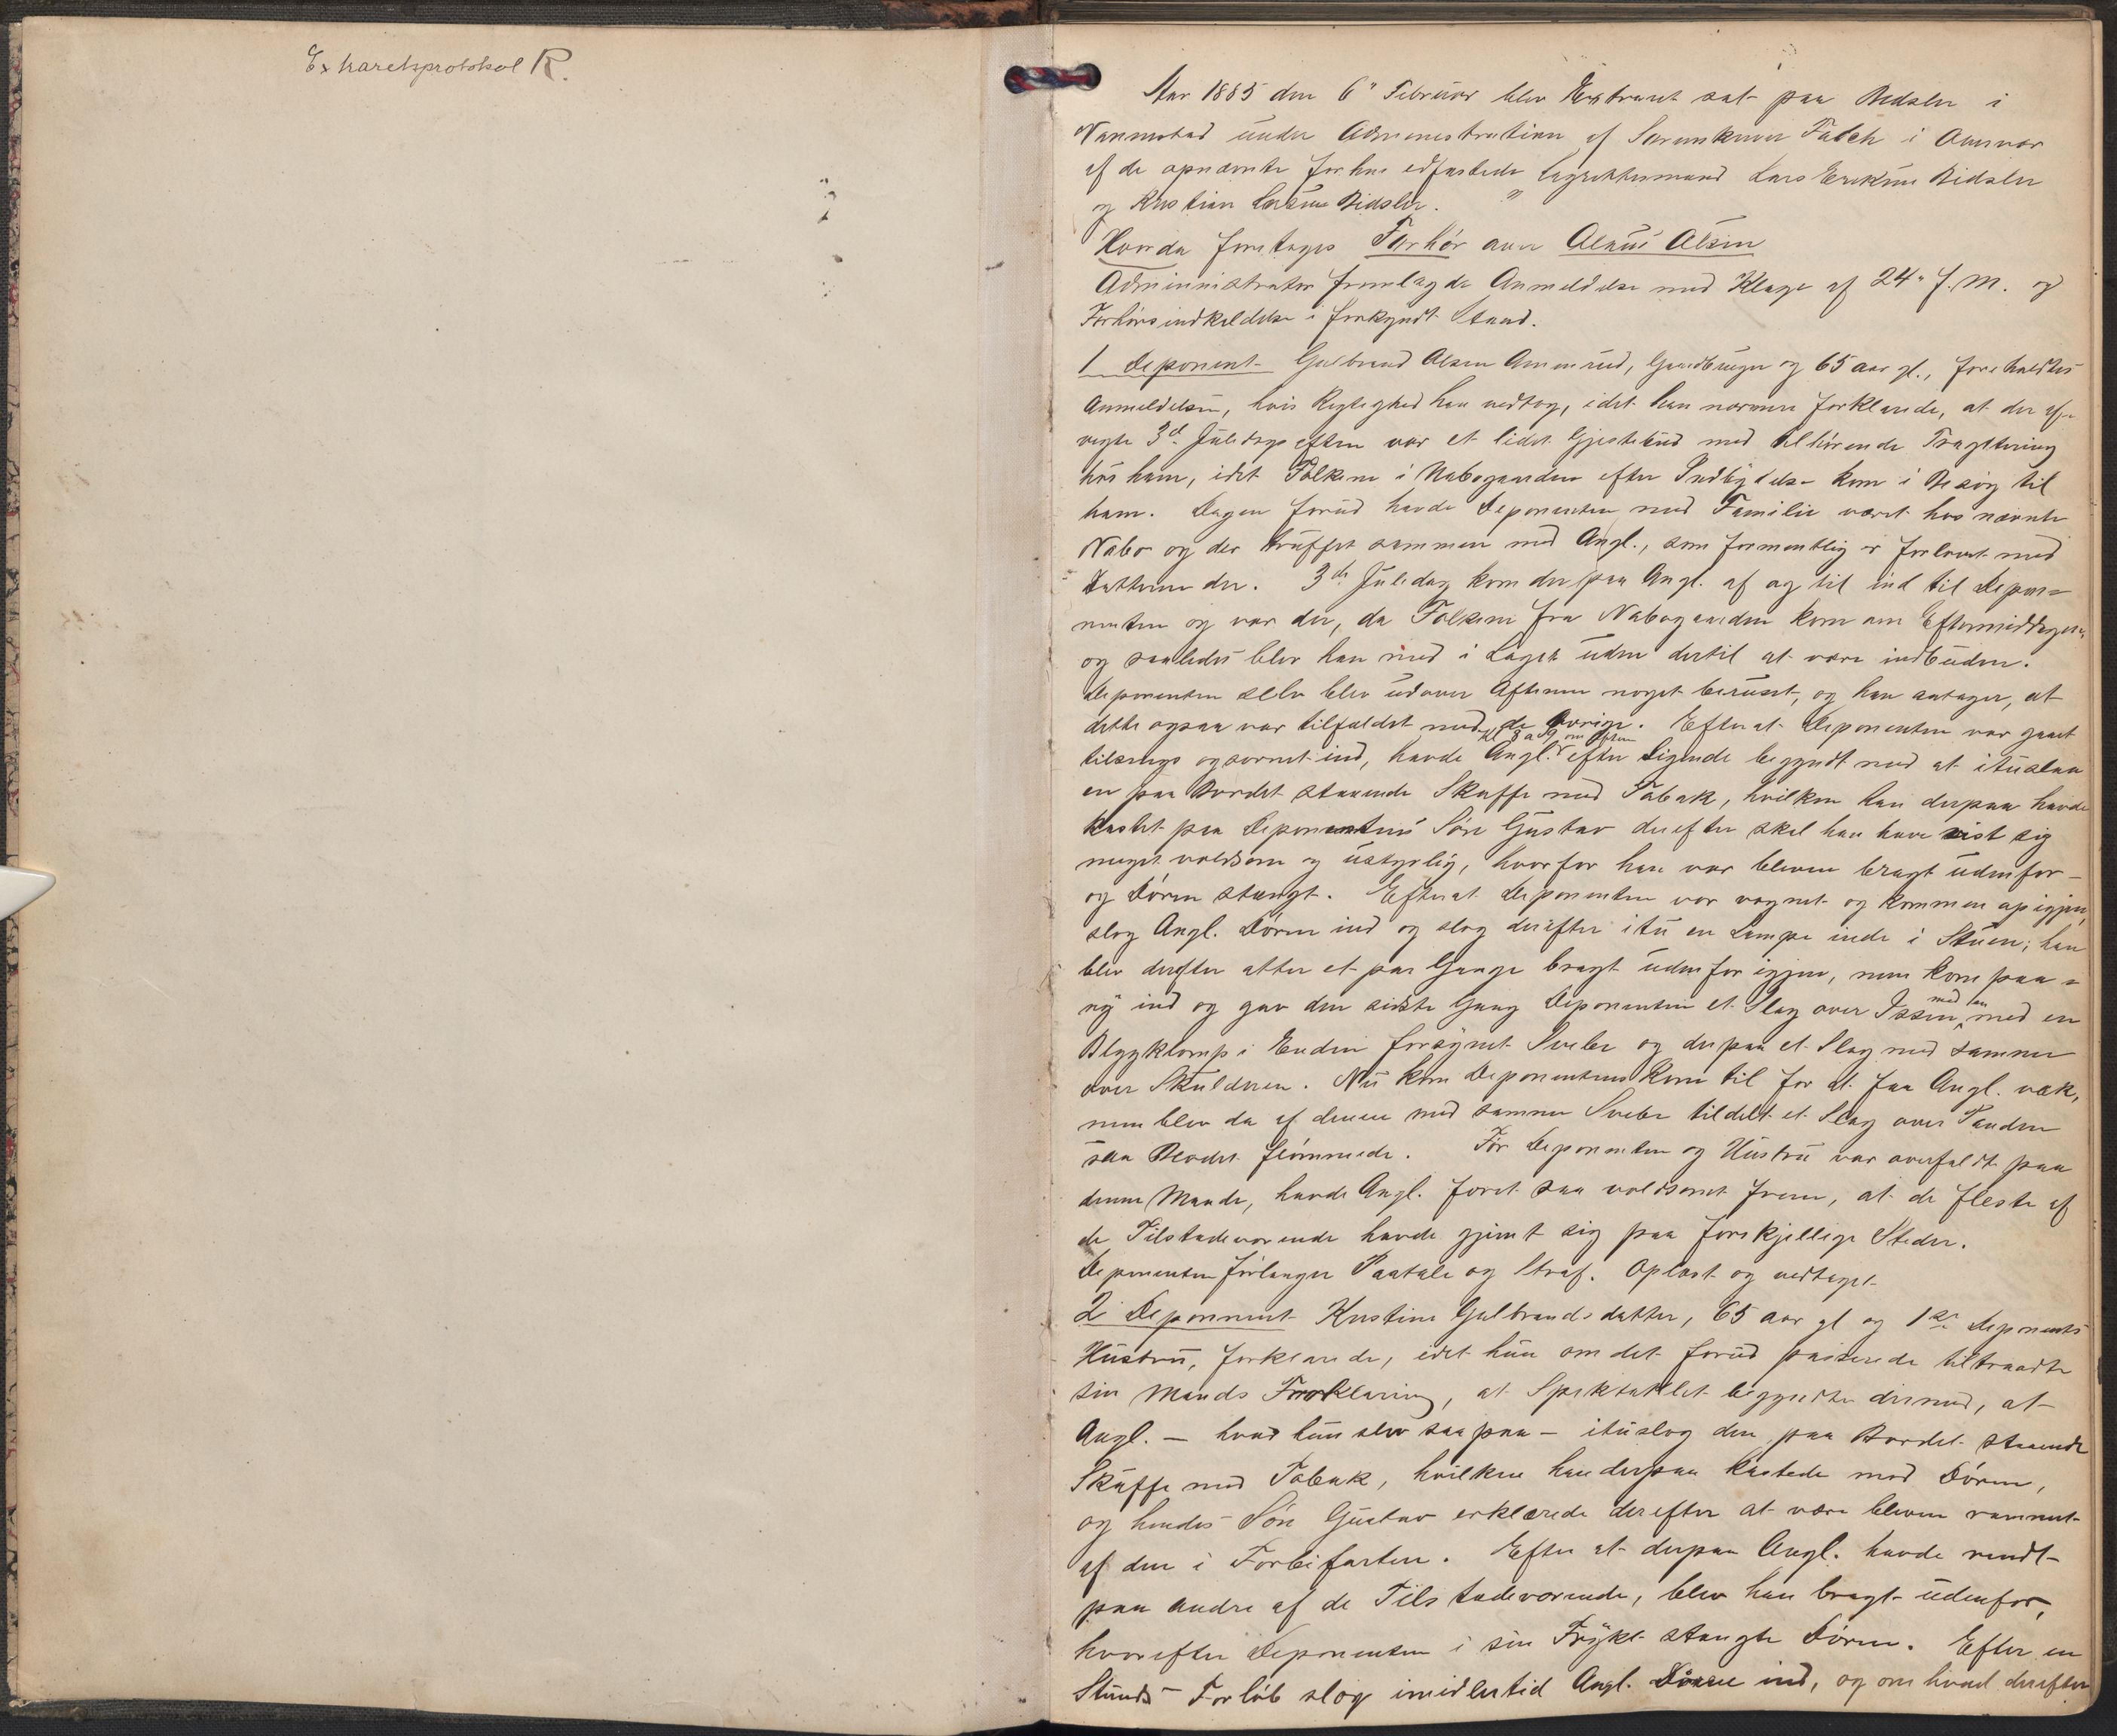 Extraretsprotokol R.
Aar 1885 den 6" Februar blev Extraret sat paa Bidsler i
Nannestad under Administration af Sorenskriver Falch i Overvær
af de opnævnte forhen edfæstede Lagrettesmænd Lars Eriksen Bidsler
og Kristian Larsen Bidsler. "
Hvorda foretoges Forhör over Olaus Olsen
Administrator fremlagde Anmeldelse med Klage af 24" f. M. og
Forhörsindkaldelse i forkyndt Stand.
1 Deponent Gulbrand Olsen Ammerud, Gaardbruger og 65 aar gl., foreholdtes
Anmeldelsen, hvis Rigtighed han vedtog, idet han nærmere forklarede, at der af-
vigte 3d. Juledags aften var et lidet Gjestebud med tilhörende Tragtering
hos ham, idet Folkene i Nabogaarden efter Indbydelse kom i Besög til
ham. Dagen forud havde Deponenten med Familie været hos nævnte
Nabo og der truffet sammen med Angl., som formentlig er forlovet med
Datteren der. 3de Juledag kom derpaa Angl. af og til ind til Depo=
nenten og var der, da Folkene fra Nabogaarden kom om Eftermiddagen,
og saaledes blev han med i Laget uden dertil at være indbuden.
Deponenten selv blev udover Aftenen noget beruset, og han antager, at
dette ogsaa var tilfældet med de Övrige. Efterat Deponenten var gaaet
kl 8 a 9 om Aften
tilsengs og sovnet ind, havde Angl. efter Sigende begyndt med at itusslaa
en paa Bordet staaende Skuffe med Tobak, hvilken han derpaa havde
kastet paa Deponentens Sön Gustav derefter skal han have vist sig
meget voldsom og ustyrlig, hvorfor han var bleven bragt udenfor -
og Dören stængt. Efterat Deponenten var vognet og kommen op igjen,
slog Angl. Dören ind og slog derefter itu en Lampe inde i Stuen; han
blev derefter atter et par Gange bragt udenfor igjen, men kom paa=
ny ind og gav den sidste Gang Deponenten et Slag over Issen med en
Blyklomp i Enden forsynet Svebe og derpaa et Slag med samme
over Skulderen. Nu kom Deponentens Kone til for at faa Angl. væk,
men blev da af denne med samme Svebe tildelt et Slag over Panden
saa Blodet flömmede. Før Deponenten og Hustru var overfaldt paa
denne Maade, havde Angl. foret saa voldsomt frem, at de fleste af
de Tilstedeværende havde gjemt sig paa forskjellige Steder.
Deponenten forlanger Paatale og Straf. Oplæst og vedtaget.
2 Deponent Kristine Gulbrandsdatter, 65 aar gl og 1ste Deponents
Hustru, forklarede, idet hun om det forud passerede tiltraadte
sin Mands Forklaring, at Spektaklet begyndte dermed, at
Angl. - hvad hun selv saa paa - ituslog den paa Bordet staaende
Skuffe med Tobak, hvilken han derpaa kastede mod Dören,
og hendes Sön Gustav erklærede derefter at være bleven rammet
af den i Forbifarten. Efter at derpaa Angl. havde rendt
paa andre af de Tilstedeværende, blev han bragt udenfor,
hvorefter Deponenten i sin Frykt stængte Dören. Efter en
Stunds Forløb slog imidlertid Angl. Dören ind, og om hvad derefter